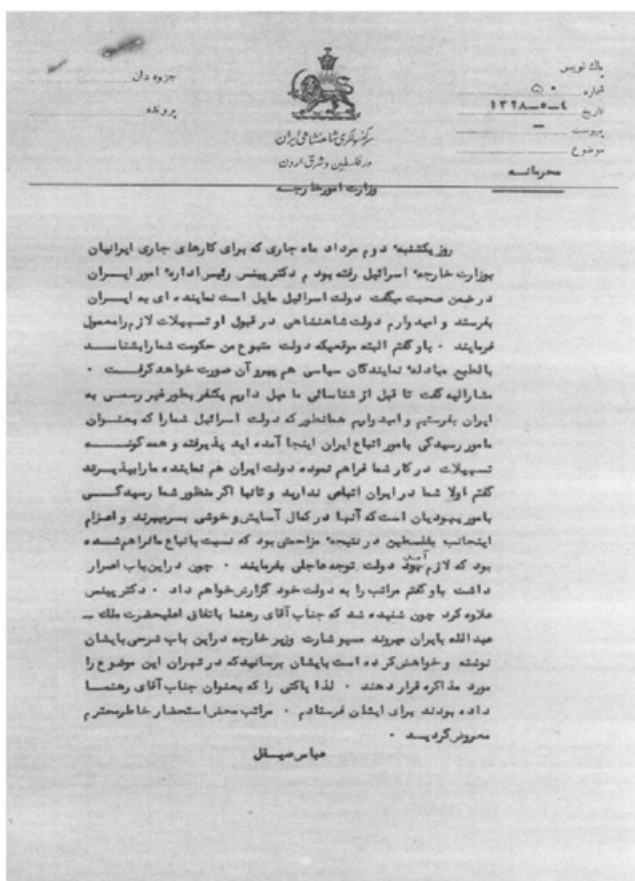 پاك نویس
شماره ۵۰
تاریخ ۱۳۲۸-۵-٤
پیوست —
موضوع
محرمانه
جزوه دان
پرونده
سرکنسولگری شاهنشاهی ایران
در فلسطین و شرق اردن
وزارت امورخارجه
روز یکشنبه دوم مرداد ماه جاری که برای کارهای جاری ایرانیان
بوزارت خارجه اسرائیل رفته بودم دکتر پینس رئیس اداره امور ایران
در ضمن صحبت میگفت دولت اسرائیل مایل است نماینده ای به ایران
بفرستد و امیدوارم دولت شاهنشاهی در قبول او تسهیلات لازم رامعمول
فرمایند ۰ باو گفتم البته موقعیکه دولت متبوع من حکومت شمارابشناسد
بالطبع مبادله نمایندگان سیاسی هم پیرو آن صورت خواهدگرفت ۰
مشارالیه گفت تا قبل از شناسائی ما میل داریم یکنفر بطور غیر رسمی به
ایران بفرستیم و امیدواریم همانطور که دولت اسرائیل شمارا که بعنوان
مامور رسیدگی بامور اتباع ایران اینجا آمده اید پذیرفته و همه گونه
تسهیلات در کار شما فراهم نموده دولت ایران هم نماینده مارابپذیرند
گفتم اولا شما در ایران اتباعی ندارید و ثانیا اگر منظور شما رسیدگی
بامور یهودیان است که آنها در کمال آسایش و خوشی بسرمیبرند و اعزام
اینجانب بفلسطین در نتیجه مزاحمتی بود که نسبت باتباع مافراهم شده
بود که لازم آمد دولت توجه عاجلی بفرمایند ۰ چون در این باب اصرار
داشت باو گفتم مراتب را به دولت خود گزارش خواهم داد ۰ دکتر پینس
علاوه کرد چون شنیده شد که جناب آقای رهنما باتفاق اعلیحضرت ملك —
عبدالله بایران میروند مسیو شارت وزیر خارجه در این باب شرحی بایشان
نوشته و خواهش کرده است بایشان برسانید که در تهران این موضوع را
مورد مذاکره قرار دهند ۰ لذا پاکتی را که بعنوان جناب آقای رهنما
داده بودند برای ایشان فرستادم ۰ مراتب محض استحضار خاطر محترم
معروض گردید ۰
عباس صیقل